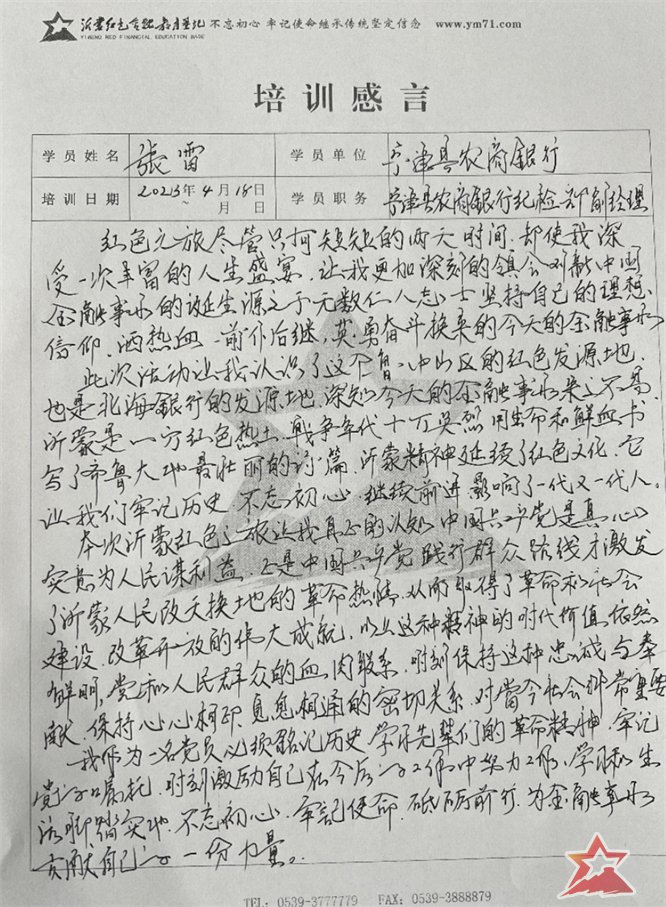 沂蒙红色金融教育基地 不忘初心 牢记使命继承传统坚定信念 www.ym71.com
YIMENG RED FINANCIAL EDUCATION BASE
培训感言
学员姓名 張雷 学员单位 宁津县农商銀行
培训日期 2023年4月18日 ~ 月 日 学员职务 宁津县农商銀行纪检部副经理
红色之旅尽管只有短短的两天时间,却使我深
受一次丰富的人生盛宴,让我更加深刻的领会对新中国
金融事业的诞生源之于无数仁人志士坚持自己的理想
信仰,洒热血,前仆后继,英勇奋斗换来的今天的金融事业
此次活动让我认识了这个 中山区的红色发源地.
也是北海銀行的发源地.深知今天的金融事业来之不易.
沂蒙是一方红色热土,戰争年代十万英烈用生命和鲜血书
写了齐鲁大地最壮丽的诗篇,沂蒙精神延续了红色文化.它
让我们牢记历史 不忘初心.继续前进影响了一代又一代人.
本次沂蒙红色之旅让我真正的认知中国共产党是真心
实意为人民谋利益,正是中国共产党践行群众路线才激发
了沂蒙人民改天换地的革命热情.从而取得了革命和社会
建设.改革开放的伟大成就,以上这种精神的时代价值依然
鲜明,党和人民群众的血肉联系.时刻保持这种忠诚与奉
献.保持心心相印.息息相通的密切关系.对當今社会非常重要
我作为一名党员必须铭记历史 学习先辈们的革命精神.牢记
党的嘱托.时刻激励自己在今后的工作中努力工作.学习和生
活脚踏实地.不忘初心.牢記使命.砥砺前行.为金融事业
贡献自己的一份力量。
TEL: 0539-3777779 FAX: 0539-3888879